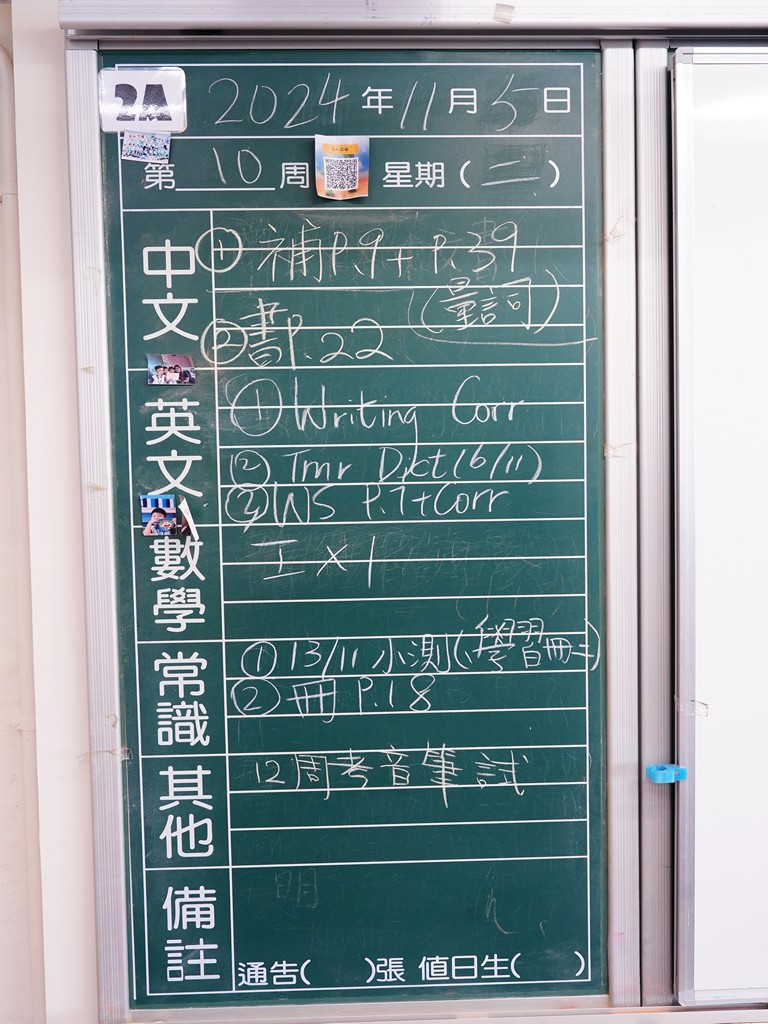 2A
2024年11月5日
第10周 星期(二)
中文
① 補P.9 + P.39
(量詞)
② 書P.22
英文
① Writing Corr
② Tmr Dict (6/11)
③ WS P.7+Corr
數學
工 × 1
常識
① 13/11 小測(學習冊二)
② 冊 P.18
其他
12周考音筆試
備註
明
通告( )張 值日生( )